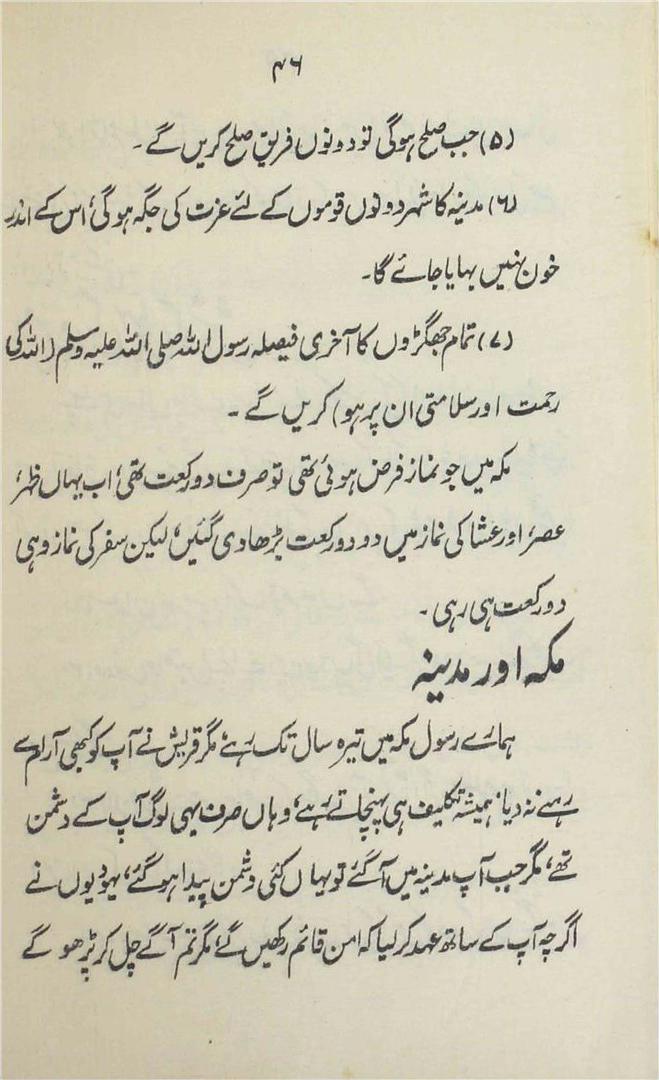 ۴۶
(۵) جب صلح ہوگی تو دونوں فریق صلح کریں گے۔
(۶) مدینہ کا شہر دونوں قوموں کے لئے عزت کی جگہ ہوگی، اس کے اندر
خون نہیں بہایا جائے گا۔
(۷) تمام جھگڑوں کا آخری فیصلہ رسول اللہ صلی اللہ علیہ وسلم (اللہ کی
رحمت اور سلامتی ان پر ہو) کریں گے۔
مکہ میں جو نماز فرض ہوئی تھی تو صرف دو رکعت تھی، اب یہاں ظہر،
عصر، اور عشا کی نماز میں دو دو رکعت بڑھا دی گئیں، لیکن سفر کی نماز وہی
دو رکعت ہی رہی۔
مکہ اور مدینہ
ہمارے رسول مکہ میں تیرہ سال تک رہے، مگر قریش نے آپ کو کبھی آرام سے
رہنے نہ دیا، ہمیشہ تکلیف ہی پہنچاتے رہے، وہاں صرف یہی لوگ آپ کے دشمن
تھے، مگر جب آپ مدینہ میں آ گئے تو یہاں کئی دشمن پیدا ہو گئے، یہودیوں نے
اگرچہ آپ کے ساتھ عہد کر لیا کہ امن قائم رکھیں گے، مگر تم آگے چل کر پڑھو گے